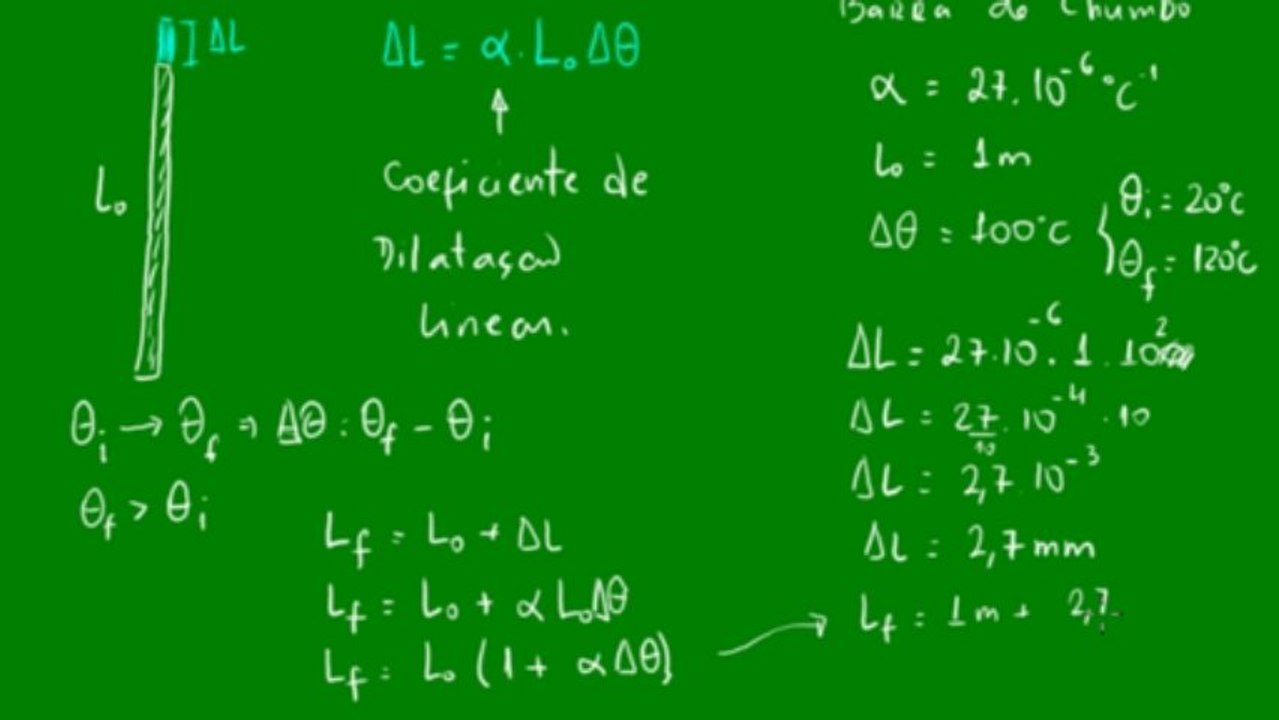 ] ΔL
ΔL = α . L₀ Δθ
L₀
Coeficiente de
Dilatação
linear.
θᵢ → θ_f ⇒ Δθ : θ_f - θᵢ
θ_f > θᵢ
L_f = L₀ + ΔL
L_f = L₀ + α L₀Δθ
L_f = L₀ (1 + αΔθ)
Barra de Chumbo
α = 27 . 10⁻⁶ °C⁻¹
L₀ = 1m
Δθ = 100°C { θᵢ = 20°C
θ_f = 120°C
ΔL = 27.10⁻⁶ . 1 . 10²
ΔL = 27/10 . 10⁻⁴ . 10
ΔL = 2,7 10⁻³
ΔL = 2,7mm
L_f = 1m + 2,7